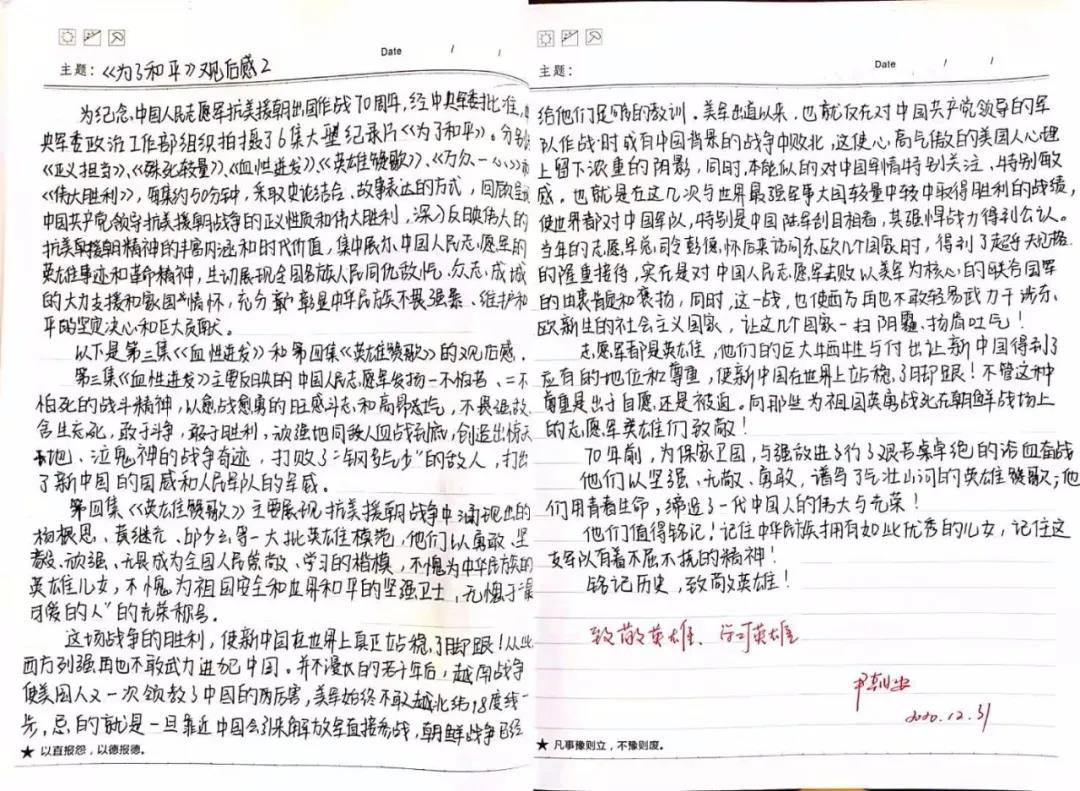 Date / /
主题：《为了和平》观后感2
为纪念中国人民志愿军抗美援朝出国作战70周年，经中央军委批准，中
央军委政治工作部组织拍摄了6集大型纪录片《为了和平》。分别
《正义担当》、《殊死较量》、《血性迸发》、《英雄赞歌》、《万众一心》
《伟大胜利》，每集约50分钟，采取史论结合、故事表达的方式，回顾
中国共产党领导抗美援朝战争的正义性质和伟大胜利，深入反映伟大的
抗美援朝精神的丰富内涵和时代价值，集中展示中国人民志愿军的
英雄事迹和革命精神，生动展现全国各族人民同仇敌忾、众志成城
的大力支援和家国情怀，充分彰显中华民族不畏强暴、维护和
平的坚定决心和巨大贡献。
以下是第三集《血性迸发》和第四集《英雄赞歌》的观后感。
第三集《血性迸发》主要反映的中国人民志愿军发扬一不怕苦、二不
怕死的战斗精神，以愈战愈勇的旺盛斗志和高昂士气，不畏强敌
舍生忘死，敢于斗争，敢于胜利，顽强地同敌人血战到底，创造出惊天
动地、泣鬼神的战争奇迹，打败了"钢多气少"的敌人，打出
了新中国的国威和人民军队的军威。
第四集《英雄赞歌》主要展现抗美援朝战争中涌现出的
杨根思、黄继光、邱少云等一大批英雄模范，他们以勇敢、坚
毅、顽强、无畏成为全国人民崇敬、学习的楷模，不愧为中华民族的
英雄儿女，不愧为祖国安全和世界和平的坚强卫士，无愧于"最
可爱的人"的光荣称号。
这场战争的胜利，使新中国在世界上真正站稳了脚跟！从此
西方列强再也不敢武力进犯中国。并不漫长的若干年后，越南战争
使美国人又一次领教了中国的厉害，美军始终不敢越北纬18度线一
步，忌的就是一旦靠近中国会引来解放军直接参战，朝鲜战争已经
★ 以直报怨，以德报德。
Date / /
主题：
给他们足够的教训。美军出道以来，也就仅在对中国共产党领导的军
队作战时或有中国背景的战争中败北，这使心高气傲的美国人心理
上留下浓重的阴影，同时，本能似的对中国军情特别关注、特别敏
感。也就是在这几次与世界最强军事大国较量中较中取得胜利的战绩，
使世界都对中国军队，特别是中国陆军刮目相看，其强悍战力得到公认。
当年的志愿军总司令彭德怀后来访问东欧几个国家时，得到了超乎规格
的隆重接待，实在是对中国人民志愿军击败以美军为核心的联合国军
的由衷肯定和褒扬，同时，这一战，也使西方再也不敢轻易武力干涉东
欧新生的社会主义国家，让这几个国家一扫阴霾、扬眉吐气！
志愿军都是英雄，他们的巨大牺牲与付出让新中国得到了
应有的地位和尊重，使新中国在世界上站稳了脚跟！不管这种
尊重是出于自愿还是被迫。向那些为祖国英勇战死在朝鲜战场上
的志愿军英雄们致敬！
70年前，为保家卫国，与强敌进行了艰苦卓绝的浴血奋战
他们以坚强、无敌、勇敢，谱写了气壮山河的英雄赞歌；他
们用青春生命，缔造了一代中国人的伟大与光荣！
他们值得铭记！记住中华民族拥有如此优秀的儿女，记住这
支军队有着不屈不挠的精神！
铭记历史，致敬英雄！
致敬英雄、学习英雄
2020.12.31
★ 凡事豫则立，不豫则废。